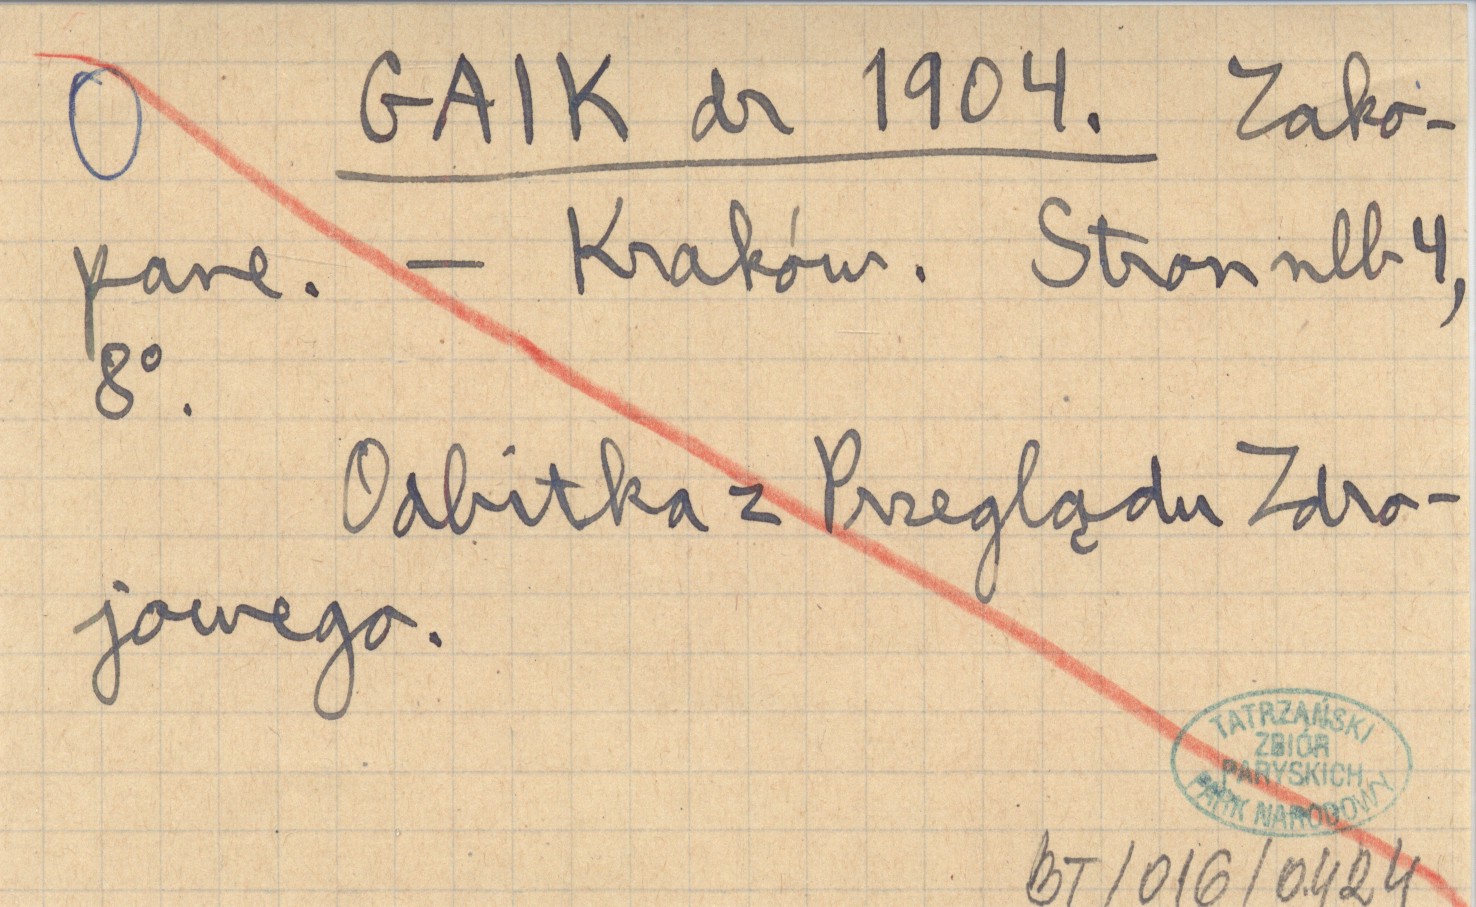 GAIK dr 1904. Zako-
pane. — Kraków. Stron nlb 4,
8°.
Odbitka z Przeglądu Zdro-
jowego.
TATRZAŃSKI
ZBIÓR
PARYSKICH
PARK NARODOWY
BT/016/0424